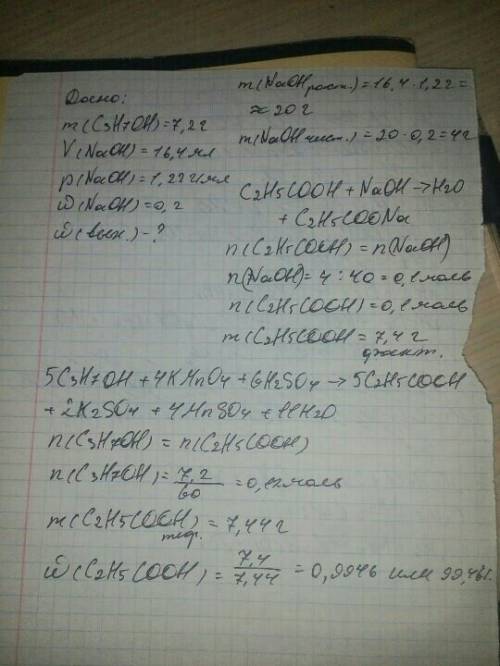 Дано:
m(C3H7OH)=7,2г
V(NaOH)=16,4мл
p(NaOH)=1,22г/мл
ω(NaOH)=0,2
ω(вых.)-?
m(NaOH раст.)=16,4·1,22=
≈20г
m(NaOH чист.)=20·0,2=4г
C2H5COOH+NaOH→H2O
+C2H5COONa
n(C2H5COOH)=n(NaOH)
n(NaOH)=4:40=0,1моль
n(C2H5COOH)=0,1моль
m(C2H5COOH=7,4г
факт.
5C3H7OH+4KMnO4+6H2SO4→5C2H5COOH
+2K2SO4+4MnSO4+11H2O
n(C3H7OH)=n(C2H5COOH)
n(C3H7OH)=7,2/60=0,12моль
m(C2H5COOH)теор.=7,44г
ω(C2H5COOH)=7,4/7,44=0,9946 или 99,46%